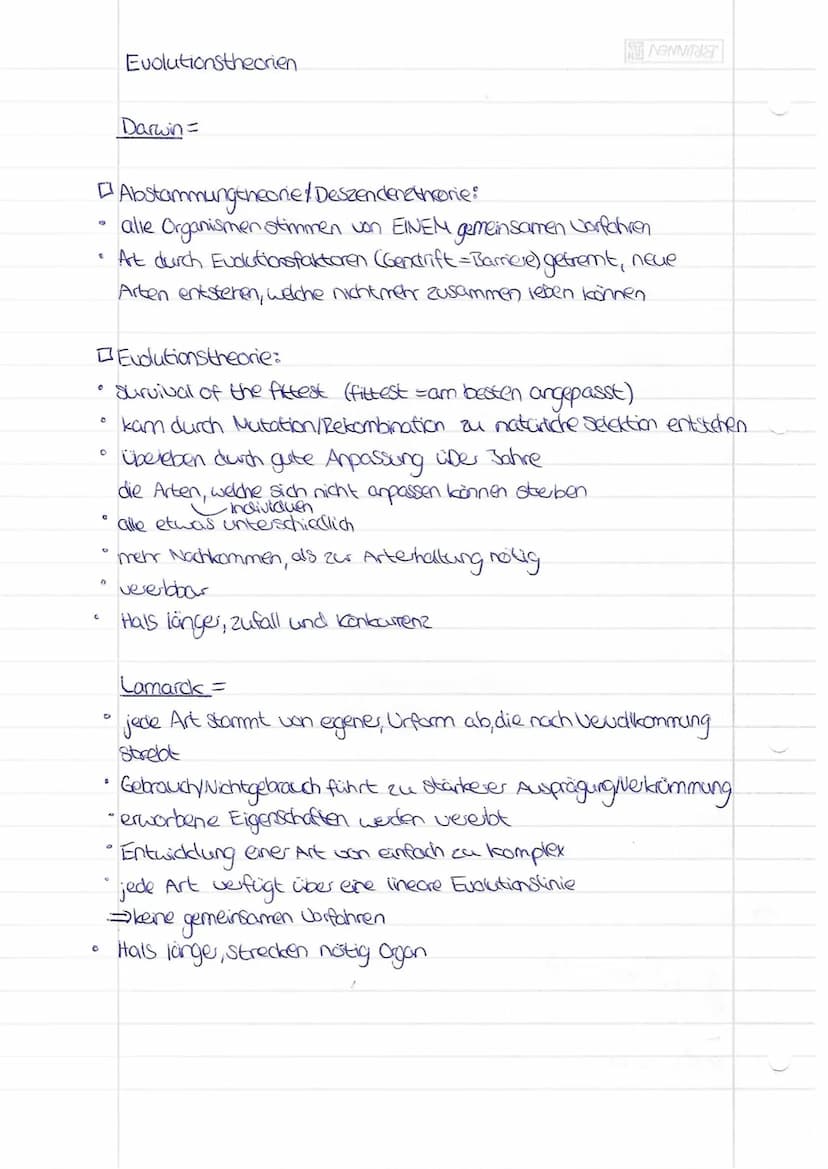 Evolutionstheorien
Darwin =
Abstammungtheorie / Deszendenztheorie:
• alle Organismen stimmen von EINEM gemeinsamen Vorfahren
• Art durch Evolutionsfaktoren (Gendrift = Barriere) getrennt, neue
Arten entstehen, welche nicht mehr zusammen leben können
Evolutionstheorie:
• survival of the fittest (fittest = am besten angepasst)
• kann durch Mutation/Rekombination zu natürliche Selektion entstehen
• überleben durch gute Anpassung über Jahre
die Arten, welche sich nicht anpassen können sterben
Individuen
• alle etwas unterschiedlich
• mehr Nachkommen, als zur Arterhaltung nötig
• vererbbar
• Hals länger, zufall und Konkurrenz
Lamarck =
• jede Art stammt von eigener Urform ab, die nach Vervollkommnung
strebt
• Gebrauch/Nichtgebrauch führt zu stärkerer Ausprägung/Verkrümmung
• erworbene Eigenschaften werden vererbt
• Entwicklung einer Art von einfach zu komplex
• jede Art verfügt über eine lineare Evolutionslinie
⇒ keine gemeinsamen Vorfahren
• Hals länger, strecken nötig Organ